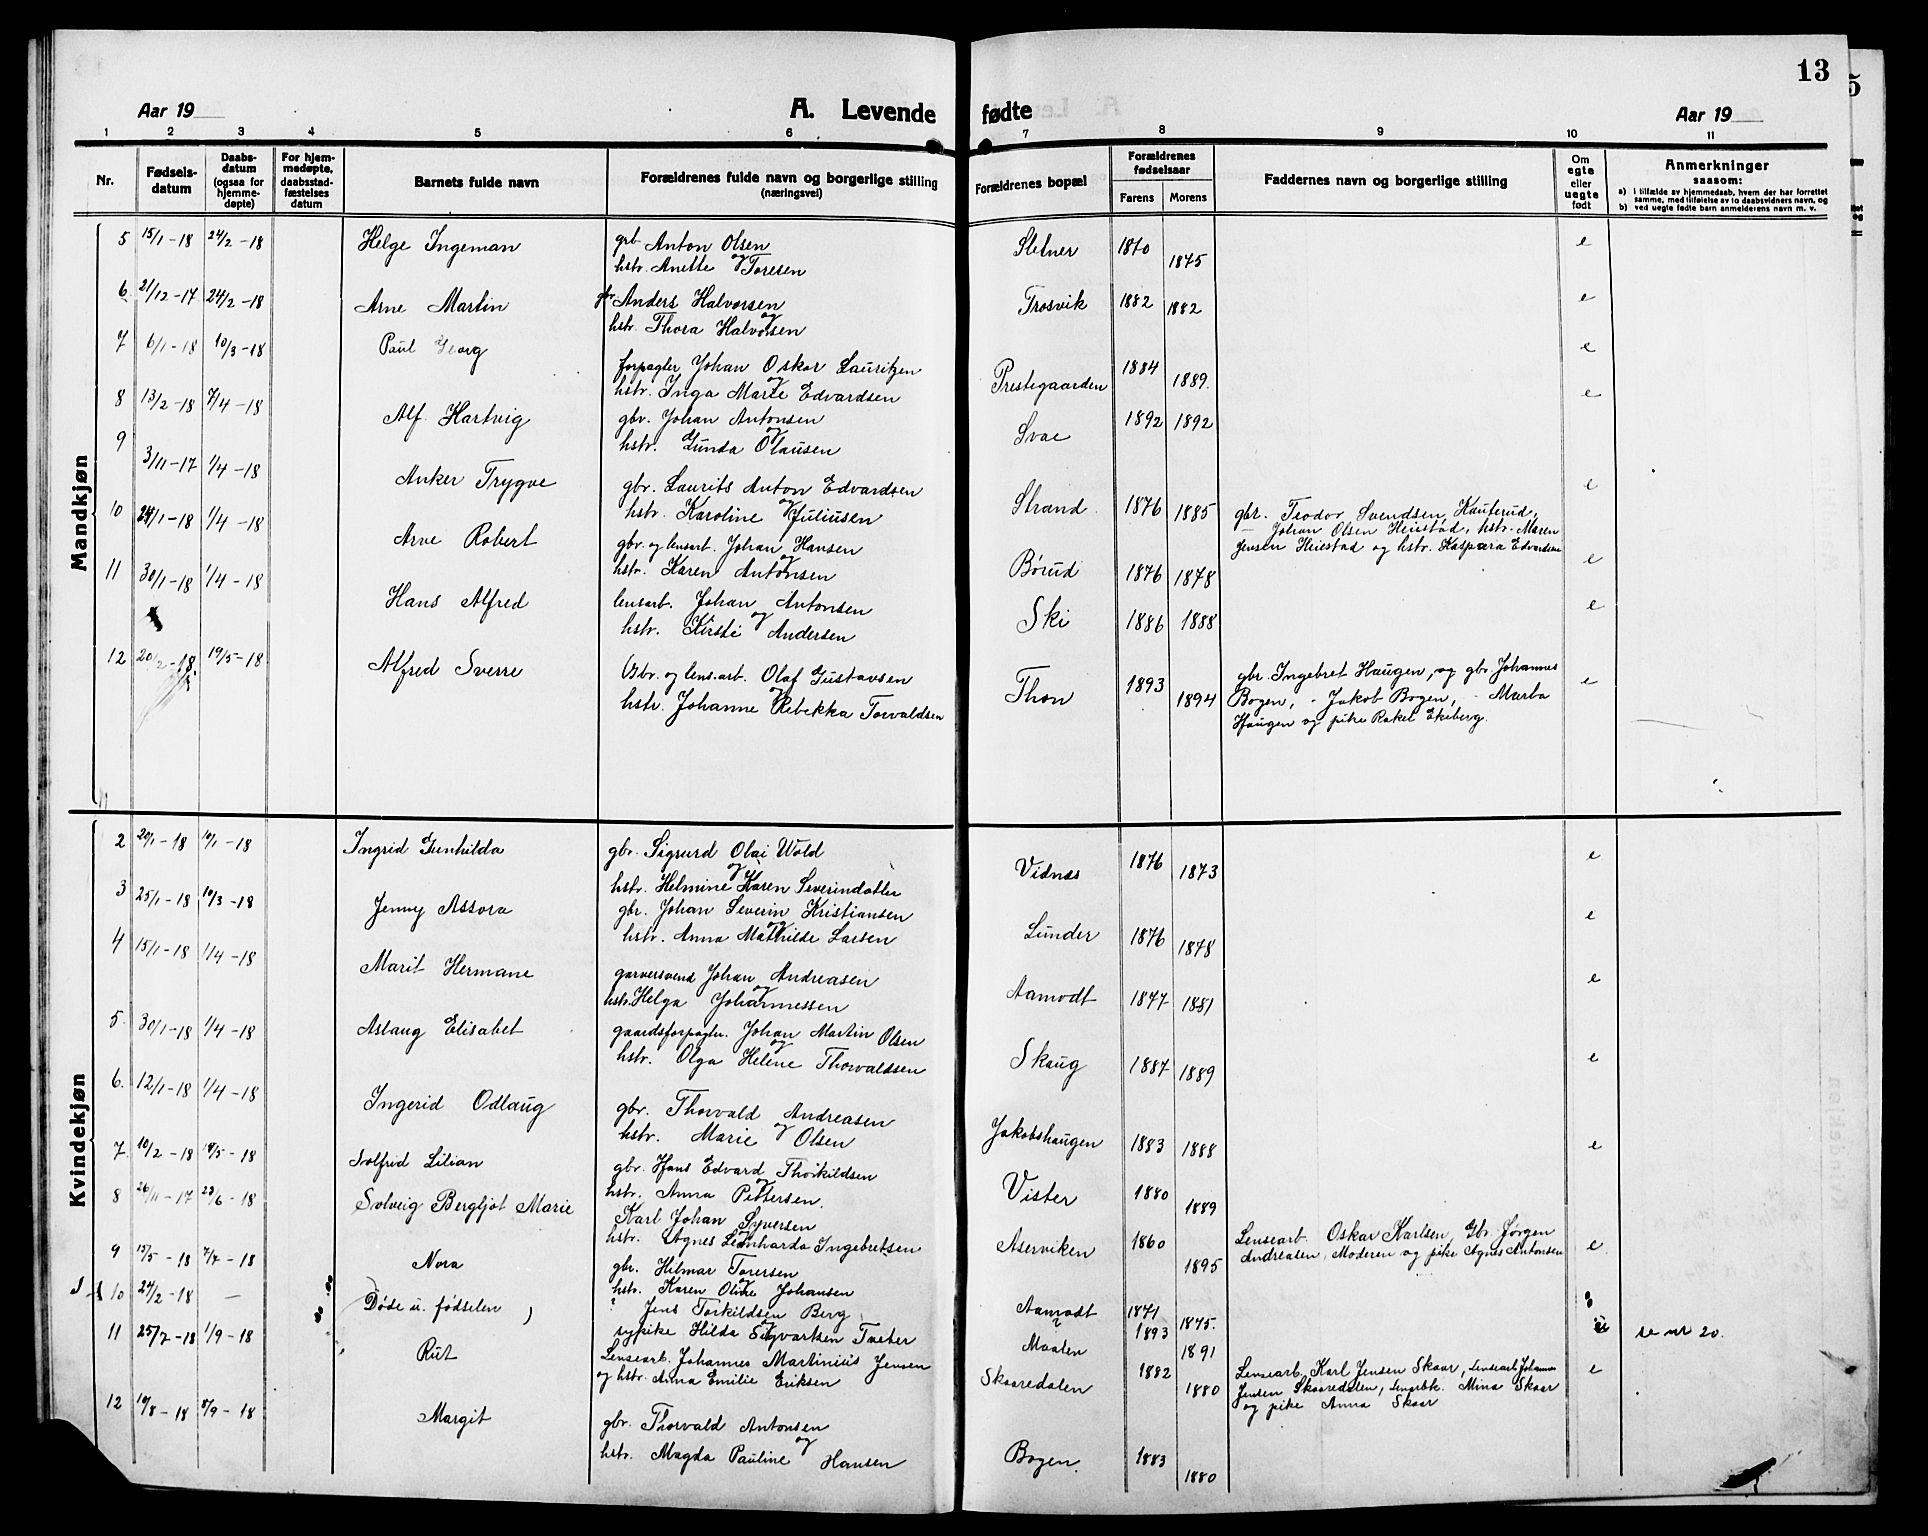 13
Aar 19
A. Levende fødte
Aar 19
1 2 3 4 5 6 7 8 9 10 11
Nr.
Fødsels-
datum
Daabs-
datum
(ogsaa for
hjemme-
døpte)
For hjem-
medøpte,
daabsstad-
fæstelses
datum
Barnets fulde navn
Forældrenes fulde navn og borgerlige stilling
(næringsvei)
Forældrenes bopæl
Forældrenes
fødselsaar
Farens Morens
Faddernes navn og borgerlige stilling
Om
egte
eller
uegte
født
Anmerkninger
saasom:
a) i tilfælde av hjemmedaab, hvem der har forrettet
samme, med tilføielse av to daabsvidners navn, og
b) ved uegte fødte barn anmelderens navn m. v.
Mandkjøn
5 15/1-18 24/2-18 Helge Ingeman grb. Anton Olsen Sletner 1870 1875 e
og
hstr. Anette Toresen
6 21/12-17 24/2-18 Arne Martin gbr Anders Halvorsen Trosvik 1882 1882 e
og
hstr. Thora Halvorsen
7 6/1-18 10/3-18 Paul Georg forpagter Johan Oskar Lauritzen Prestegaarden 1884 1889. e
og
hstr. Inga Marie Edvardsen
8 13/2-18 7/4-18 Alf Hartvig gbr. Johan Antonsen Svae 1892 1892 e
og
hstr. Gunda Olausen
9 3/11-17 1/4-18 Anker Trygve gbr. Laurits Anton Edvardsen Strand 1876 1885 e
og
hstr. Karoline Juliusen
gbr. Teodor Svendsen Kauterud,
Johan Olsen Heiestad, hstr. Maren
Jensen Heiestad og hstr. Kaspara Edvardsen
10 24/1-18 1/4-18 Arve Robert gbr. og lensarb. Johan Hansen Børud 1876 1878 e
og
hstr. Karen Antonsen
11 30/1-18 1/4-18 Hans Alfred lensarb. Johan Antonsen Ski 1886 1888 e
og
hstr. Kirsti Andersen
12 20/2-18 19/5-18 Alfred Sverre Gbr. og lens.arb. Olaf Gustavsen Thon 1893 1894 e
og
hstr. Johanne Rebekka Torvaldsen
gbr. Ingebret Haugen, og gbr Johannes
Bogen, - Jakob Bogen, - Marta
Haugen og pike Rakel Ekeberg.
Kvindekjøn
2 20/1-18 10/1-18 Ingrid Gunhilda gbr. Sigurd Olai Wold Vidnes 1876 1873 e
og
hstr. Helmine Karen Severindatter
3 25/1-18 10/3-18 Jenny Assora gbr. Johan Severin Kristiansen Lunder 1876 1878 e
og
hstr. Anna Mathilde Larsen
4 15/1-18 1/4-18 Marit Hermane garversvend Johan Andreasen Aamodt 1877 1881 e
og
hstr. Helga Johannessen
5. 30/1-18 1/4-18 Aslaug Elisabet gaardsforpagter. Johan Martin Olsen Skaug 1887 1889 e
og
hstr. Olga Helene Thorvaldsen
6. 12/1-18 1/4-18 Ingerid Odlaug gbr. Thorvald Andreasen Jakobshaugen 1883 1888 e
og
hstr. Marie Olsen
7. 10/2-18 19/5-18 Solfrid Lilian gbr. Hans Edvard Thorkildsen Vister 1880 1889
og
hstr. Anna Pettersen.
8 26/11-17 23/6-18 Solveig Bergljot Marie Karl Johan Syversen Aserviken 1860 1895 e
og
hstr. Agnes Leonharda Ingebretsen
Lensearb. Oskar Karlsen, Gbr. Jørgen
Andreasen, Moderen og pike Agnes Antonsen
9 15/5-18 7/7-18 Nora gbr. Hilmar Torersen Aamodt 1871 1875.
og
hstr. Karen Olive Johansen
10 24/2-18 — Døde u. fødselen ) ? Jens Torkildsen Berg Maalen 1893 1891 se nr 20.
og
sypike Hilda Sigvartsen Tveter
11 25/7-18 1/9-18 Rut Lensearb. Johannes Martinius Jensen Skaaredalen 1882 1880 e
og hstr. Anna Emilie Eriksen
Lensearb. Karl Jensen Skaar, Lensearb. Johannes
Jensen Skaaredalen, Mina Skaar
og pike Anna Skaar
12 10/8-18 8/9-18 Margit gbr. Thorvald Antonsen Bogen. 1883 1880
og
hstr. Magda Pauline Hansen